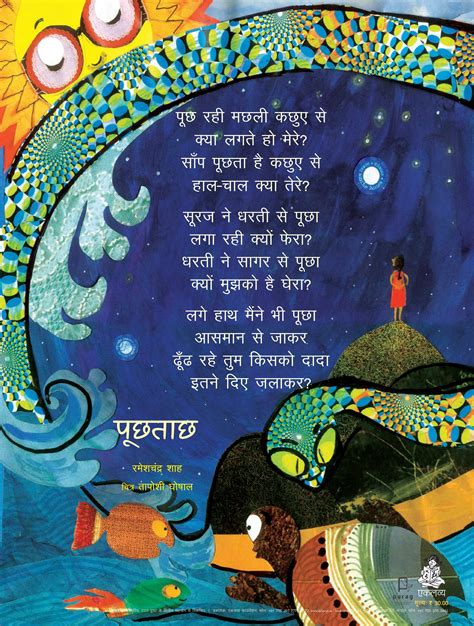 पूछ रही मछली कछुए से
क्या लगते हो मेरे?
साँप पूछता है कछुए से
हाल-चाल क्या तेरे?
सूरज ने धरती से पूछा
लगा रही क्यों फेरा?
धरती ने सागर से पूछा
क्यों मुझको है घेरा?
लगे हाथ मैंने भी पूछा
आसमान से जाकर
ढूँढ रहे तुम किसको दादा
इतने दिए जलाकर?
पूछताछ
रमेशचंद्र शाह
चित्र तापोशी घोषाल
parag
एकलव्य
मूल्य: ₹ 30.00